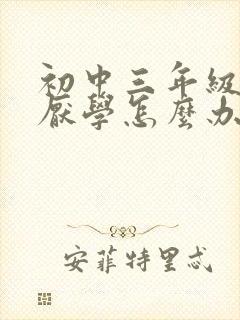 初中三年級
厭學怎麼办
安菲特里忒